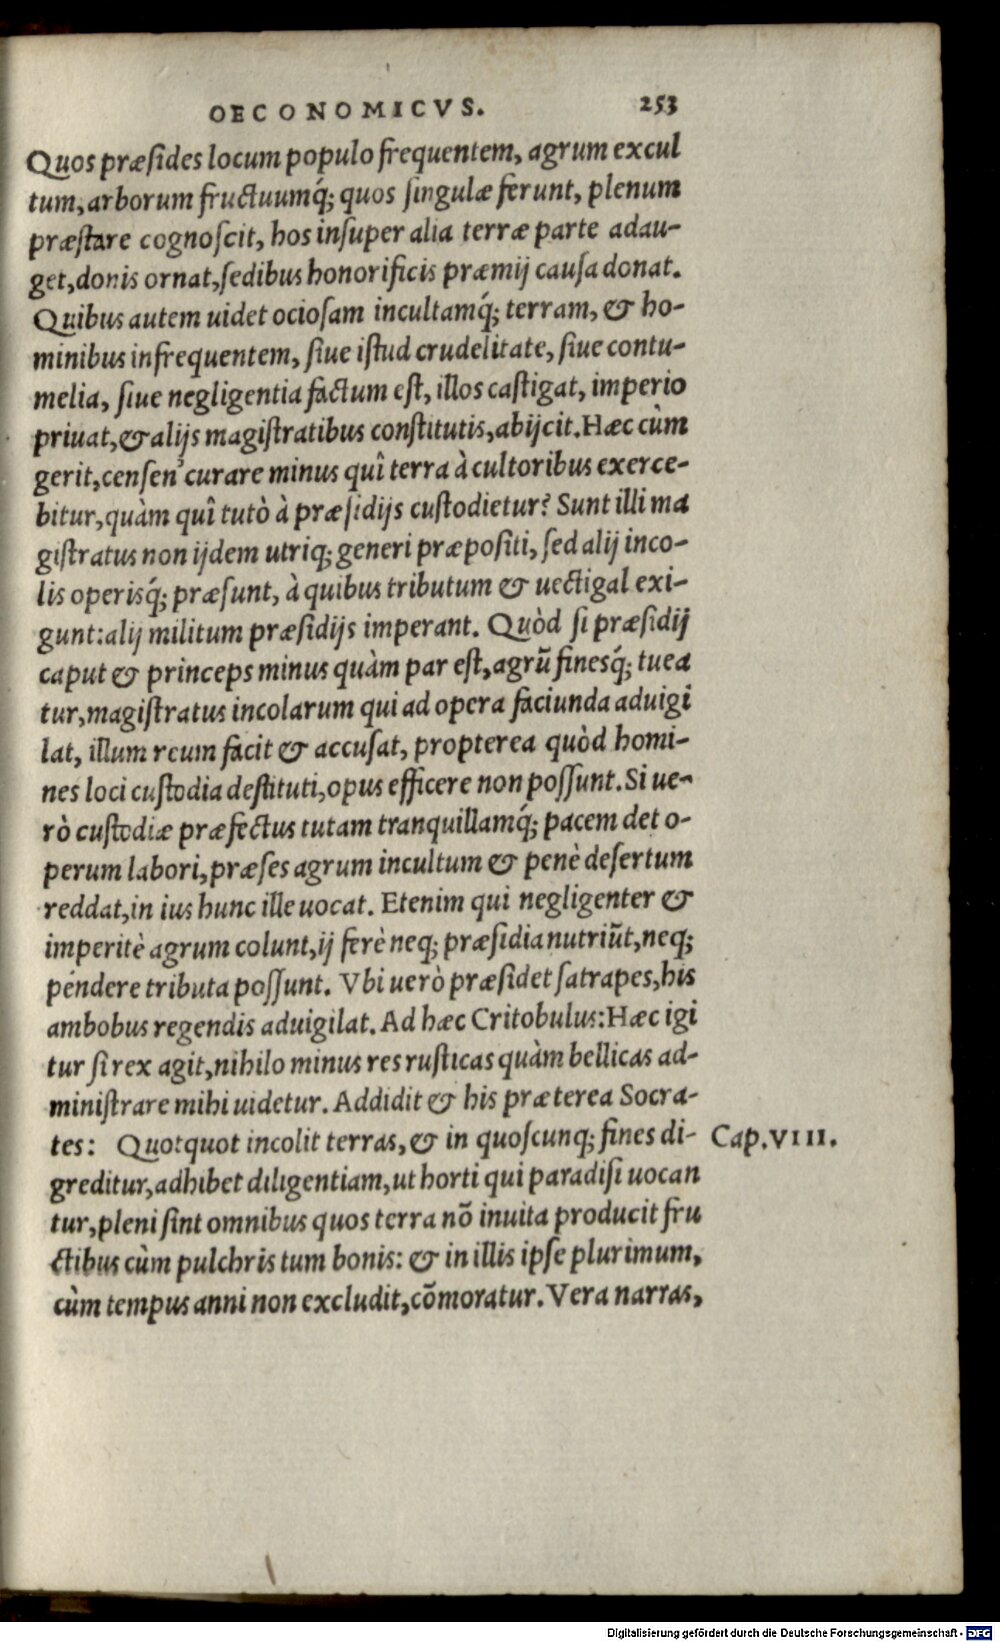 OECONOMICVS. 253
Quos præsides locum populo frequentem, agrum excul
tum, arborum fructuumq́; quos singulæ ferunt, plenum
præstare cognoscit, hos insuper alia terræ parte adau-
get, donis ornat, sedibus honorificis præmij causa donat.
Quibus autem uidet ociosam incultamq́; terram, & ho-
minibus infrequentem, siue istud crudelitate, siue contu-
melia, siue negligentia factum est, illos castigat, imperio
priuat, & alijs magistratibus constitutis, abijcit. Hæc cùm
gerit, censen' curare minus quî terra à cultoribus exerce-
bitur, quàm quî tutò à præsidijs custodietur? Sunt illi ma
gistratus non ijdem utriq; generi præpositi, sed alij inco-
lis operisq́; præsunt, à quibus tributum & uectigal exi-
gunt: alij militum præsidijs imperant. Quòd si præsidij
caput & princeps minus quàm par est, agrū finesq́; tuea
tur, magistratus incolarum qui ad opera faciunda aduigi
lat, illum reum facit & accusat, propterea quòd homi-
nes loci custodia destituti, opus efficere non possunt. Si ue-
rò custodiæ præfectus tutam tranquillamq́; pacem det o-
perum labori, præses agrum incultum & penè desertum
reddat, in ius hunc ille uocat. Etenim qui negligenter &
imperitè agrum colunt, ij ferè neq; præsidia nutriūt, neq;
péndere tributa possunt. Vbi uerò præsidet satrapes, his
ambobus regendis aduigilat. Ad hæc Critobulus: Hæc igi
tur si rex agit, nihilo minus res rusticas quàm bellicas ad-
ministrare mihi uidetur. Addidit & his præterea Socra-
tes: Quotquot incolit terras, & in quoscunq; fines di- Cap. VIII.
greditur, adhibet diligentiam, ut horti qui paradisi uocan
tur, pleni sint omnibus quos terra nō inuita producit fru
ctibus cùm pulchris tum bonis: & in illis ipse plurimum,
cùm tempus anni non excludit, cōmoratur. Vera narras,
Digitalisierung gefördert durch die Deutsche Forschungsgemeinschaft - DFG